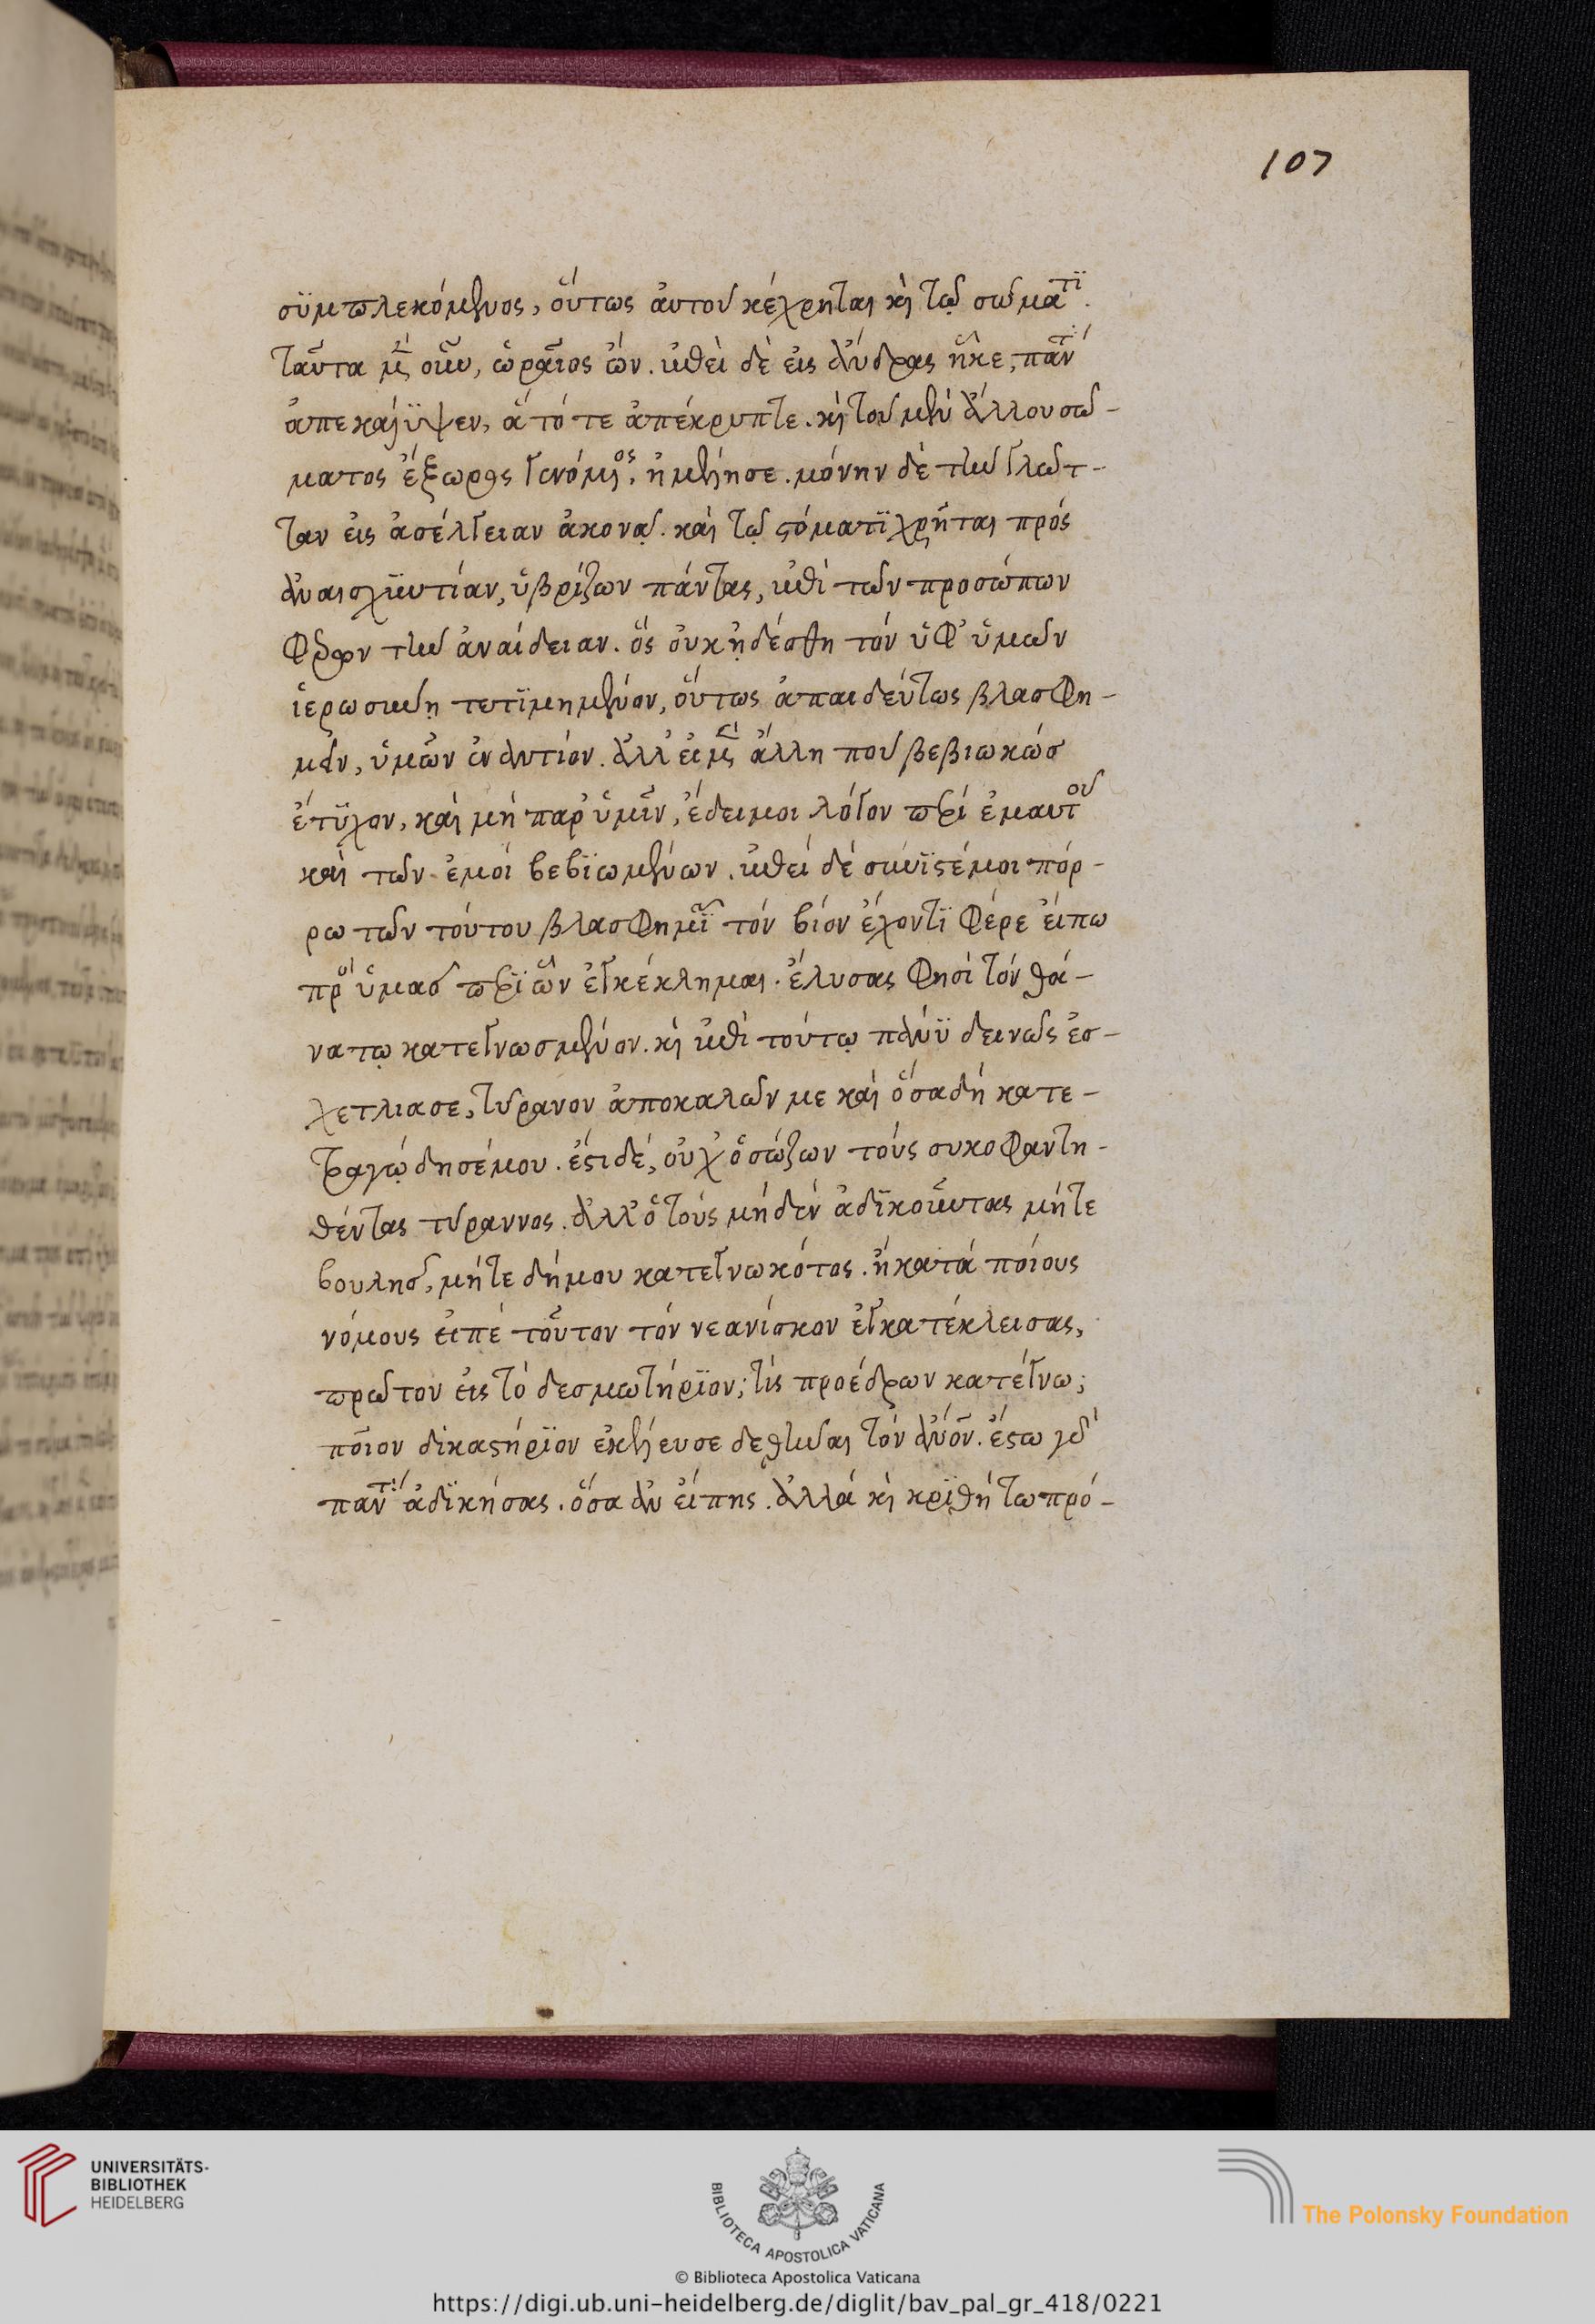 107
συμπλεκόμενος, οὕτως αὐτοῦ κέχρηται κὶ τῷ σώματι.
ταῦτα μὲν οὖν, ὡραῖος ὤν. ἐπεὶ δὲ εἰς ἄνδρας ἧκε, πάντ
ἀπεκάλυψεν, ἃ τότε ἀπέκρυπτε. κὶ τοῦ μὲν ἄλλου σώ-
ματος ἔξωρος γενόμενος, ἠμέλησε. μόνην δὲ τὴν γλῶτ-
ταν εἰς ἀσέλγειαν ἀκονᾷ. καὶ τῷ στόματι χρῆται πρὸς
ἀναισχυντίαν, ὑβρίζων πάντας, ἐπὶ τῶν προσώπων
φέρων τὴν ἀναίδειαν. ὃς οὐκ ᾐδέσθη τὸν ὑφ' ὑμῶν
ἱερωσύνῃ τετιμημένον, οὕτως ἀπαιδεύτως βλασφη-
μῶν, ὑμῶν ἐναντίον. ἀλλ' εἰ μὲν ἄλλη που βεβιωκὼσ
ἔτυχον, καὶ μὴ παρ' ὑμῖν, ἔδει μοι λόγον περὶ ἐμαυτοῦ
καὶ τῶν ἐμοὶ βεβιωμένων. ἐπεὶ δὲ σύνιστέ μοι πόρ-
ρω τῶν τούτου βλασφημιῶν τὸν βίον ἔχοντι φέρε εἴπω
πρὸς ὑμᾶσ περὶ ὧν ἐγκέκλημαι. ἔλυσας φησὶ τὸν θα-
νάτῳ κατεγνωσμένον. κὶ ἐπὶ τούτῳ πάνυ δεινῶς ἐσ-
χετλίασε, τύρανον ἀποκαλῶν με καὶ ὅσα δὴ κατε-
τραγῴδησέ μου. ἔστι δέ, οὐχ ὁ σώζων τοὺς συκοφαντη-
θέντας τύραννος. ἀλλ' ὁ τοὺς μηδὲν ἀδικοῦντας μήτε
βουλῆσ, μήτε δήμου κατεγνωκότος. ἢ κατὰ ποίους
νόμους εἰπὲ τοῦτον τὸν νεανίσκον ἐγκατέκλεισας,
πρῶτον εἰς τὸ δεσμωτήριον; τίς προέδρων κατέγνω;
ποῖον δικαστήριον ἐκέλευσε δεθῆναι τὸν ἄνον. ἔστω γὰρ
πάντ ἀδικήσας. ὅσα ἂν εἴπῃς. ἀλλὰ κὶ κριθήτω πρό-
UNIVERSITÄTS-
BIBLIOTHEK
HEIDELBERG
BIBLIOTECA APOSTOLICA VATICANA
The Polonsky Foundation
© Biblioteca Apostolica Vaticana
https://digi.ub.uni-heidelberg.de/diglit/bav_pal_gr_418/0221